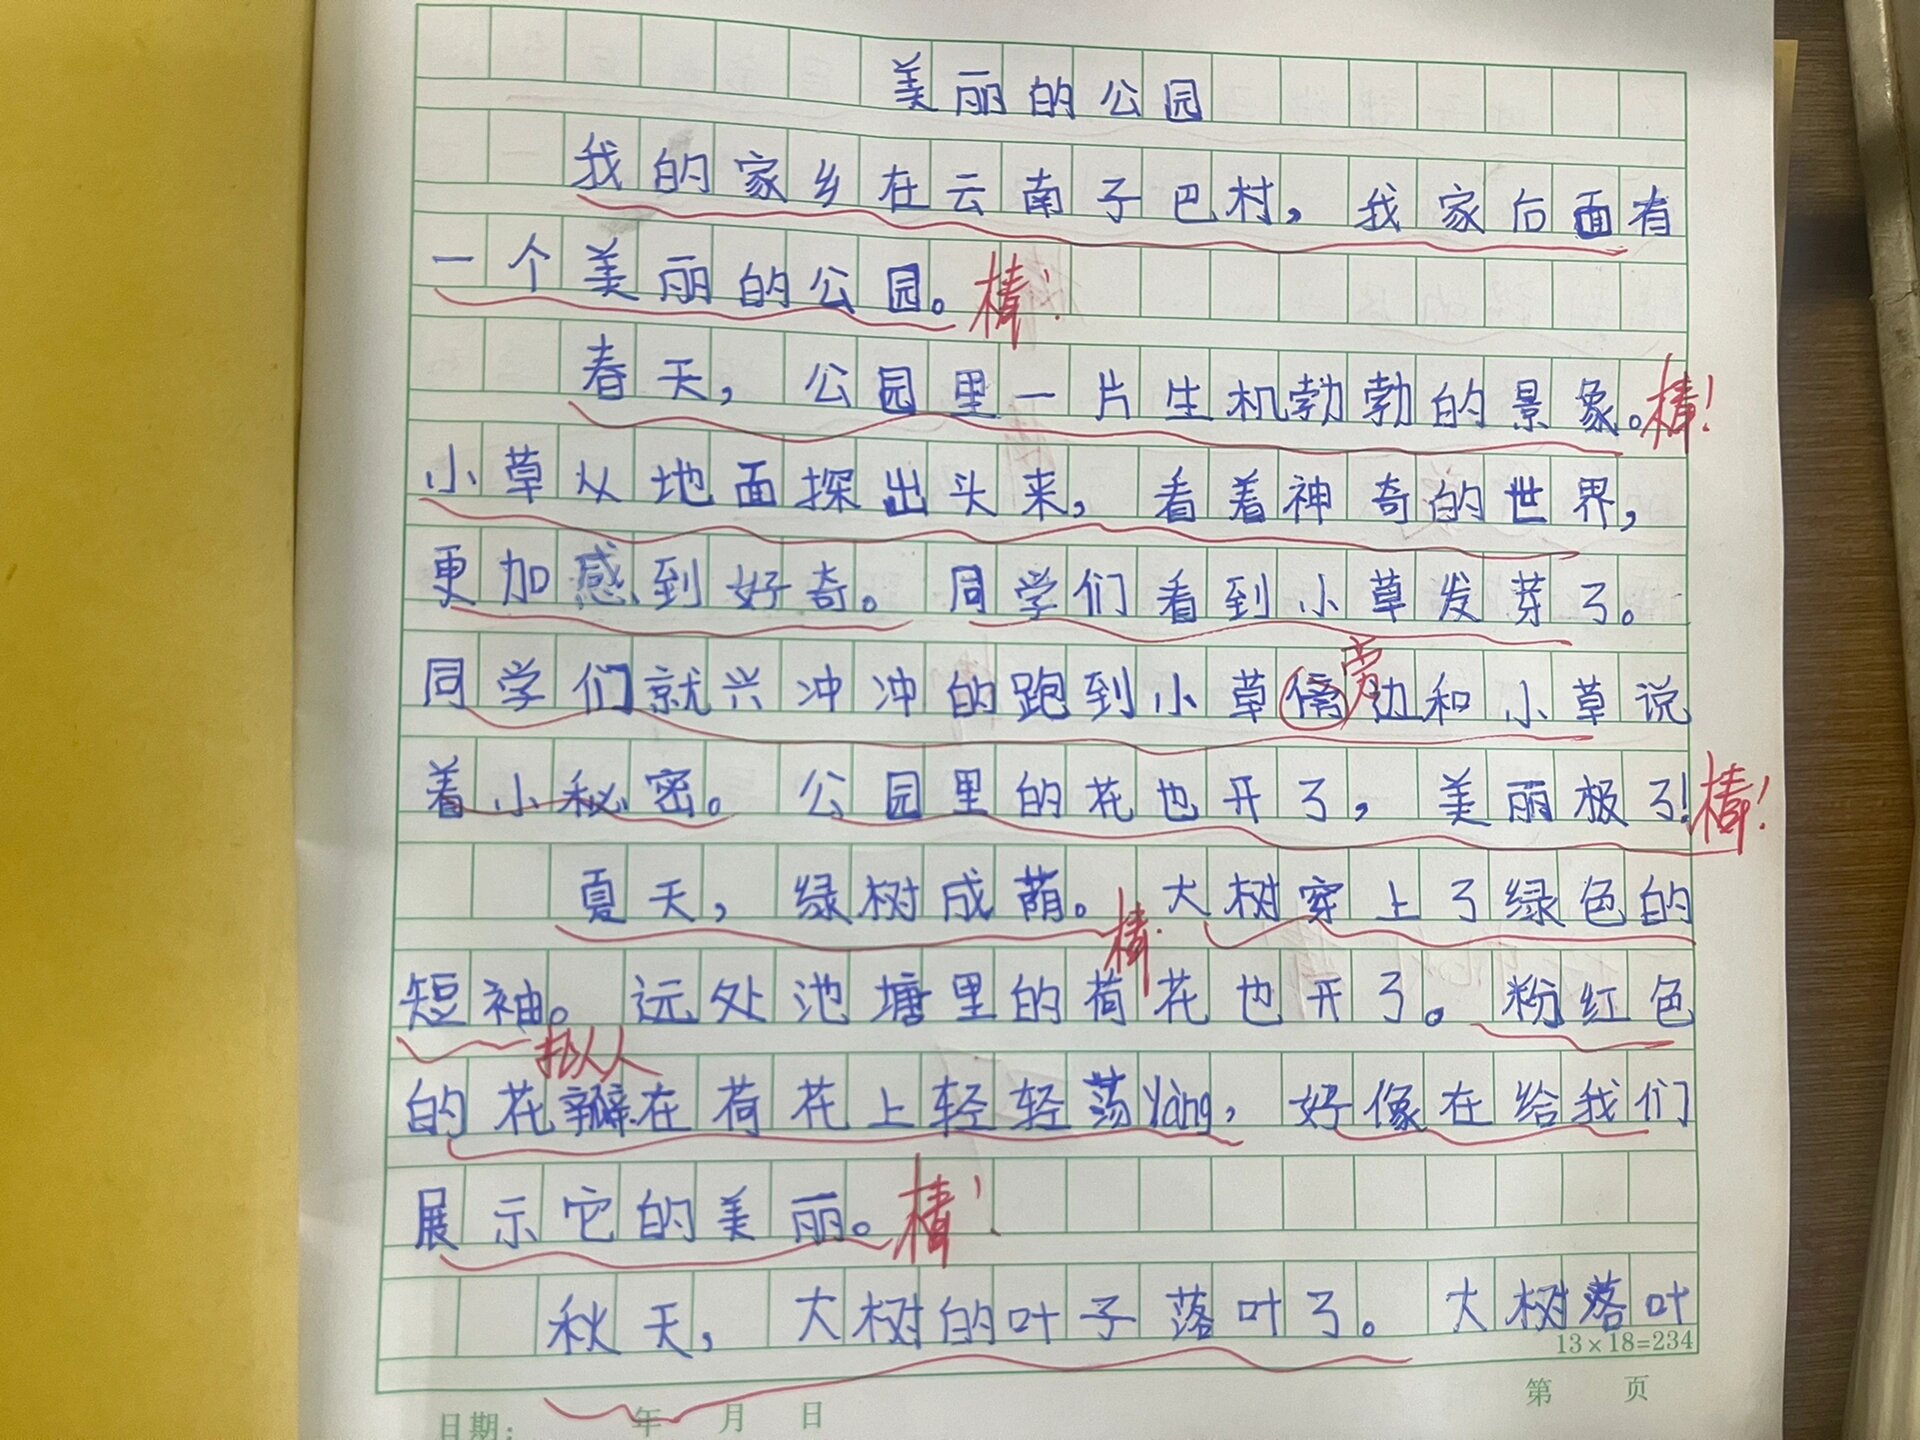 美丽的公园
我的家乡在云南子巴村，我家后面有
一个美丽的公园。棒！
春天，公园里一片生机勃勃的景象。棒！
小草从地面探出头来，看着神奇的世界，
更加感到好奇。同学们看到小草发芽了。
同学们就兴冲冲的跑到小草傍旁边和小草说
着小秘密。公园里的花也开了，美丽极了！棒！
夏天，绿树成荫。棒！大树穿上了绿色的
短袖。拟人 远处池塘里的荷花也开了。粉红色
的花瓣在荷花上轻轻荡yàng，好像在给我们
展示它的美丽。棒！
秋天，大树的叶子落叶了。大树落叶
13×18=234
第 页
日期： 年 月 日